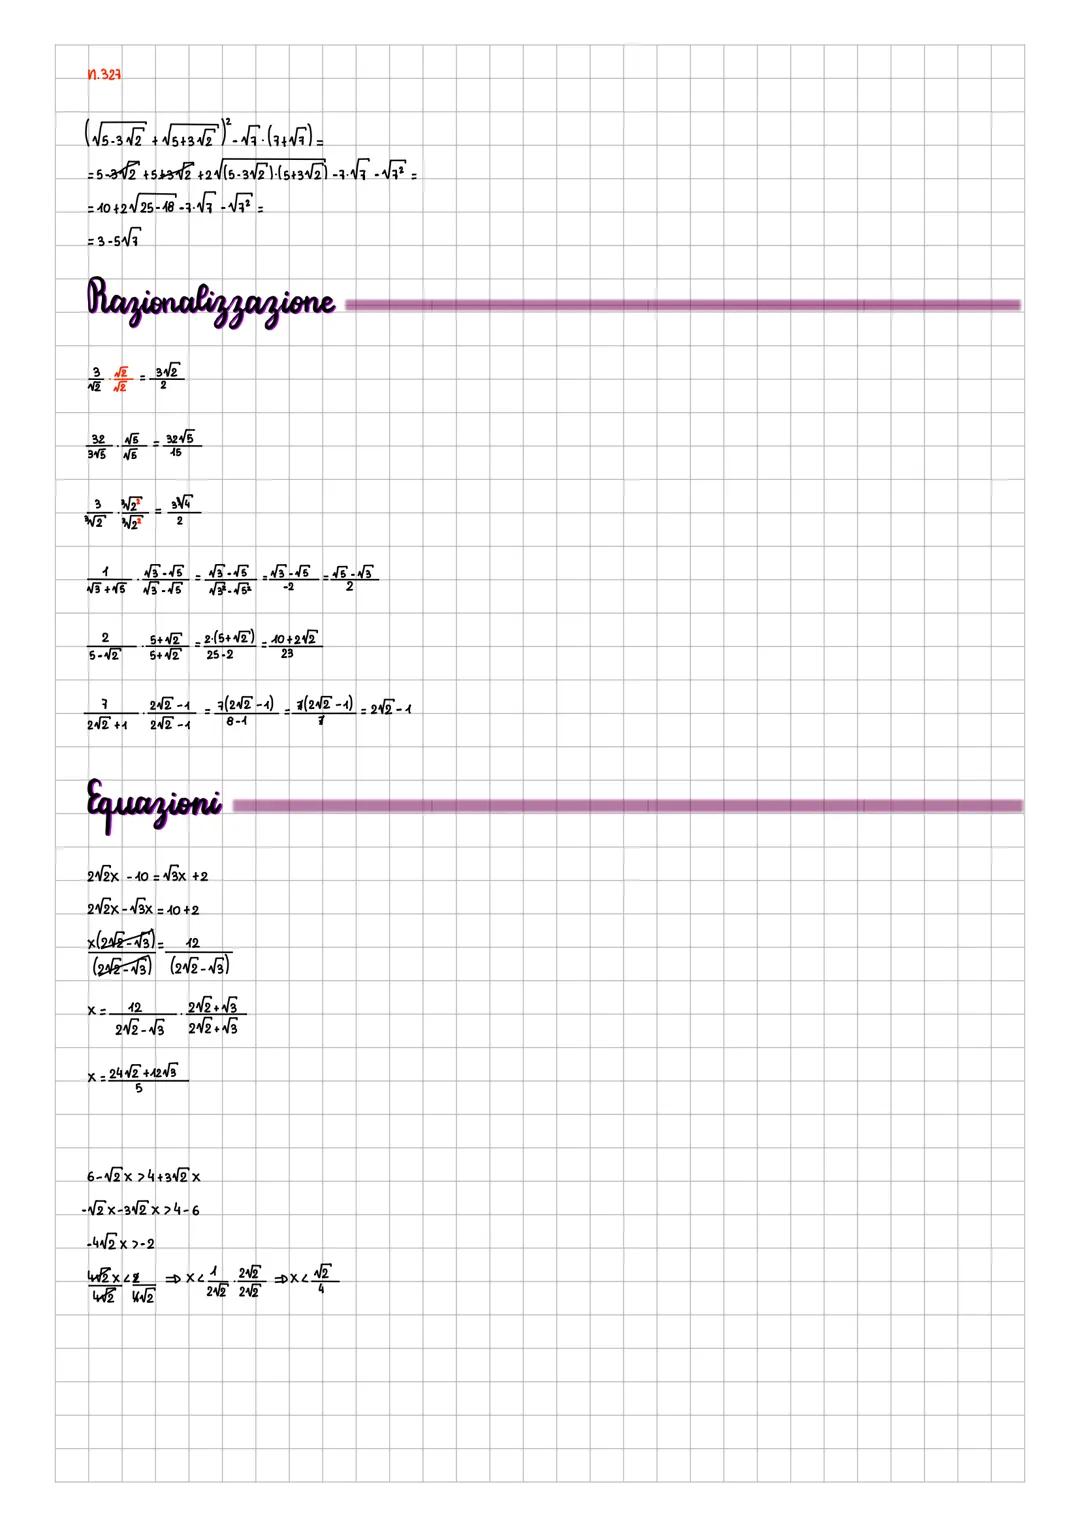 n.327
(√(5-3√2) + √(5+3√2))² - √7·(7+√7) =
= 5-3√2 + 5+3√2 + 2√((5-3√2)·(5+3√2)) - 7·√7 - √7² =
= 10 + 2√(25-18) - 7·√7 - √7² =
= 3 - 5√7
Razionalizzazione
3/√2 · √2/√2 = 3√2/2
32/3√5 · √5/√5 = 32√5/15
3/∛2 · ∛2²/∛2² = 3∛4/2
1/(√3+√5) · (√3-√5)/(√3-√5) = (√3-√5)/(√3²-√5²) = (√3-√5)/-2 = (√5-√3)/2
2/(5-√2) · (5+√2)/(5+√2) = 2·(5+√2)/(25-2) = (10+2√2)/23
7/(2√2+1) · (2√2-1)/(2√2-1) = 7(2√2-1)/(8-1) = 7(2√2-1)/7 = 2√2-1
Equazioni
2√2x - 10 = √3x + 2
2√2x - √3x = 10+2
x(2√2-√3)/(2√2-√3) = 12/(2√2-√3)
x = 12/(2√2-√3) · (2√2+√3)/(2√2+√3)
x = (24√2+12√3)/5
6-√2x > 4+3√2x
-√2x-3√2x > 4-6
-4√2x > -2
4√2x/4√2 < 2/4√2 ⇒ x < 1/2√2 · 2√2/2√2 ⇒ x < √2/4